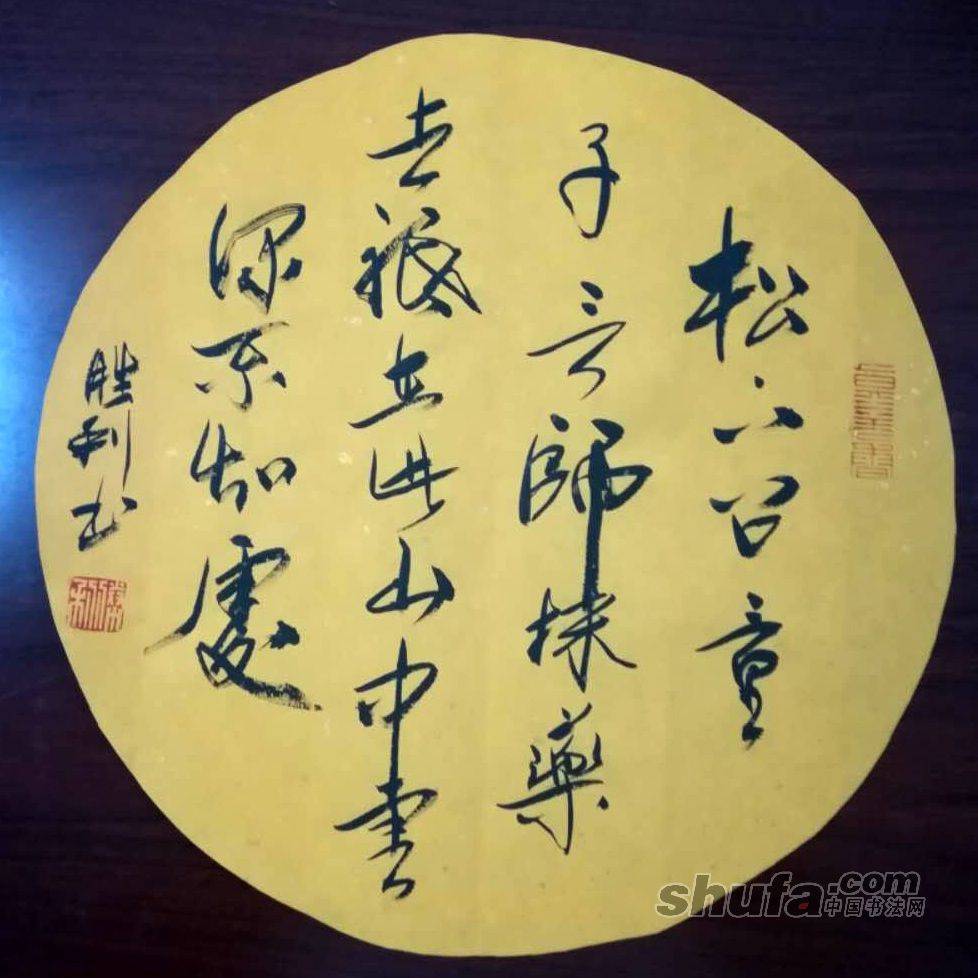 松下问童
子言師採藥
去祗在此山中雲
深不知處
胜利书
shufa.com
中国书法网